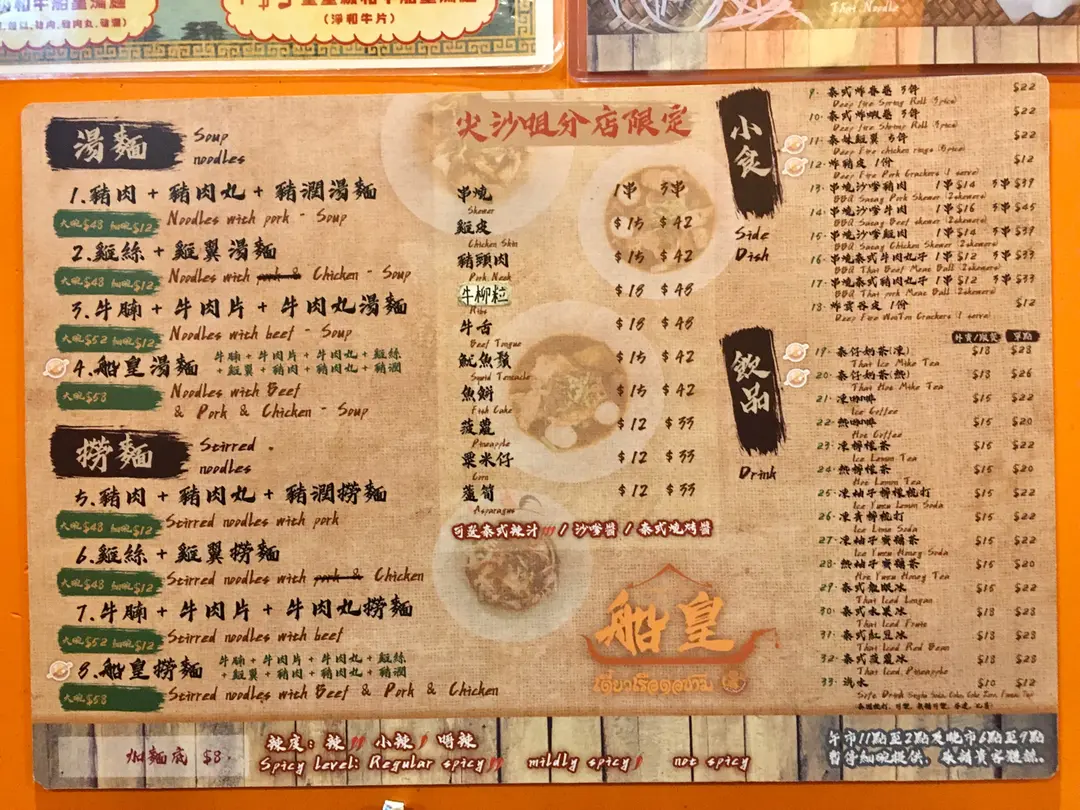 (淨和牛片)
Thai Noodle
湯麵
Soup
noodles
1.豬肉 + 豬肉丸 + 豬潤湯麵
大碗$48 細碗$12
Noodles with pork - Soup
2.雞絲 + 雞翼湯麵
大碗$48 細碗$12
Noodles with pork & Chicken - Soup
3.牛腩 + 牛肉片 + 牛肉丸湯麵
大碗$52 細碗$12
Noodles with beef - Soup
4.船皇湯麵
牛腩 + 牛肉片 + 牛肉丸 + 雞絲
+ 雞翼 + 豬肉 + 豬肉丸 + 豬潤
大碗$58
Noodles with Beef
& Pork & Chicken - Soup
撈麵
Stirred
noodles
5.豬肉 + 豬肉丸 + 豬潤撈麵
大碗$48 細碗$12
Stirred noodles with pork
6.雞絲 + 雞翼撈麵
大碗$48 細碗$12
Stirred noodles with pork & Chicken
7.牛腩 + 牛肉片 + 牛肉丸撈麵
大碗$52 細碗$12
Stirred noodles with beef
8.船皇撈麵
牛腩 + 牛肉片 + 牛肉丸 + 雞絲
+ 雞翼 + 豬肉 + 豬肉丸 + 豬潤
大碗$58
Stirred noodles with Beef & Pork & Chicken
尖沙咀分店限定
串燒 1串 3串
Skewer
雞皮 $15 $42
Chicken Skin
豬頸肉 $15 $42
Pork Neck
牛柳粒 $18 $48
Ribs
牛舌 $18 $48
Beef Tongue
魷魚鬚 $15 $42
Squid Tentacle
魚餅 $15 $42
Fish Cake
菠蘿 $12 $33
Pineapple
粟米仔 $12 $33
Corn
蘆筍 $12 $33
Asparagus
可選泰式辣汁 / 沙嗲醬 / 泰式燒烤醬
船皇
小食
Side
Dish
9. 泰式炸春卷 3件 $22
Deep Fire Spring Roll (3pics)
10. 泰式炸蝦卷 3件 $22
Deep Fire Shrimp Roll (3pics)
11. 泰妹雞翼 3件 $22
Deep Fire chicken rings (3pics)
12. 炸豬皮 1份 $12
Deep Fire Pork Crackers (1 serve)
13. 串燒沙嗲豬肉 1串$14 3串$39
BBQ Satay Pork Skewer (2skewers)
14. 串燒沙嗲牛肉 1串$16 3串$45
BBQ Satay Beef skewer (2skewers)
15. 串燒沙嗲雞肉 1串$14 3串$39
BBQ Satay Chicken Skewer (2skewers)
16. 串燒泰式牛肉丸子 1串$12 3串$33
BBQ Thai Beef Meat Ball (2skewers)
17. 串燒泰式豬肉丸子 1串$12 3串$33
BBQ Thai pork Meat Ball (2skewers)
18. 炸雲吞皮 1份 $12
Deep Fire WonTon Crackers (1 serve)
飲品
Drink
單點
19. 泰仔奶茶(凍) $18 $28
Thai Ice Milke Tea
20. 泰仔奶茶(熱) $18 $26
Thai Hot Milke Tea
21. 凍咖啡 $15 $22
Ice Coffee
22. 熱咖啡 $15 $20
Hot Coffee
23. 凍檸檬茶 $15 $22
Ice Lemon Tea
24. 熱檸檬茶 $15 $20
Hot Lemon Tea
25. 凍柚子檸檬梳打 $15 $22
Ice Yuzu Lemon Soda
26. 凍青檸梳打 $15 $22
Ice Lime Soda
27. 凍柚子蜜糖茶 $15 $22
Ice Yuzu Honey Soda
28. 熱柚子蜜糖茶 $15 $20
Hot Yuzu Honey Tea
29. 泰式龍眼冰 $15 $22
Thai Iced Longan
30. 泰式水果冰 $18 $28
Thai Iced Fruit
31. 泰式紅豆冰 $18 $28
Thai Iced Red Bean
32. 泰式菠蘿冰 $18 $28
Thai Iced Pineapple
33. 汽水 $10 $12
加麵底 $8
辣度: 辣 小辣 唔辣
Spicy Level: Regular spicy mildly spicy not spicy
午市11點至2點及晚市6點至9點
暫停細碗提供, 敬請貴客體諒.